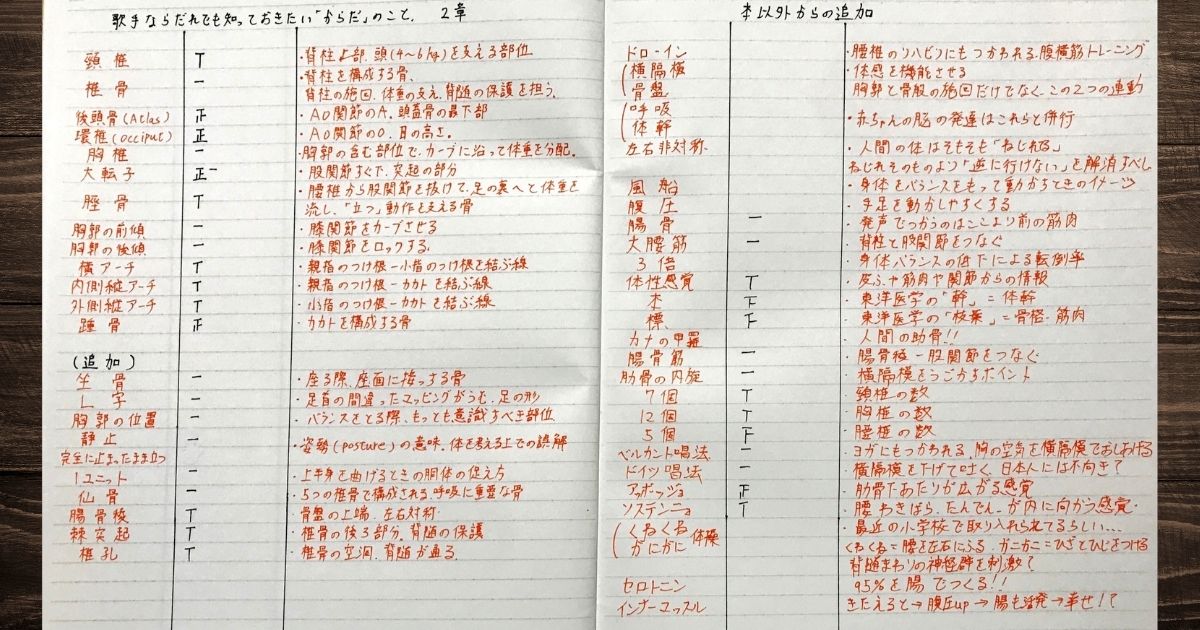 歌手ならだれでも知っておきたい「からだ」のこと. 2章
頸椎 T ・背柱上部、頭(4〜6kg)を支える部位
椎骨 一 ・背柱を構成する骨、
背柱の施回、体重の支え、背随の保護を担う.
後頭骨(Atlas) 正 ・AO関節のA、頭蓋骨の最下部
環椎(occiput) 正 ・AO関節のO、目の高さ。
胸椎 一 ・胸郭の含む部位で、カーブに沿って体重を分配.
大転子 正一 ・股関節すぐ下、突起の部分
脛骨 T ・腰椎から股関節を抜けて、足の裏へと体重を
流し、「立つ」動作を支える骨
胸郭の前傾 一 ・膝関節をカーブさせる
胸郭の後傾 一 ・膝関節をロックする.
横アーチ T ・親指のつけ根ー小指のつけ根を結ぶ線
内側縦アーチ T ・親指のつけ根ーカカトを結ぶ線
外側縦アーチ T ・小指のつけ根ーカカトを結ぶ線
踵骨 正 ・カカトを構成する骨
(追加)
坐骨 一 ・座る際、座面に接っする骨
L字 一 ・足首の間違ったマッピングがうむ、足の形
胸郭の位置 一 ・バランスをとる際、もっとも意識すべき部位
静止 一 ・姿勢(posture)の意味、体を考える上での誤解
完全に止まったまま立つ
1ユニット 一 ・上半身を曲げるときの胴体の捉え方
仙骨 一 ・5つの椎骨で構成される、呼吸に重要な骨
腸骨稜 T ・骨盤の上端、左右対称.
棘突起 T ・椎骨の後ろ部分、背随の保護
椎孔 T ・椎骨の空洞、背随が通る.
本以外からの追加
ドローイン ・腰椎のリハビリにもつかわれる、腹横筋トレーニング
(横隔極 ・体感を機能させる
骨盤 胸郭と骨股の施回だけでなく、この2つの連動
(呼吸
体幹 ・赤ちゃんの脳の発達はこれらと併行
左右非対称. ・人間の体はそもそも「ねじれる」
ねじれそのものより「逆に行けない」を解消すべし
風船 ・身体をバランスをもって動かるときのイメージ
腹圧 ・手足を動かしやすくする
腸骨 一 ・発声でつかうのはここより前の筋肉
大腰筋 一 ・脊柱と股関節をつなぐ
3倍 ・身体バランスの低下による転倒率
体性感覚 T ・皮ふ+筋肉や関節からの情報
本 下 ・東洋医学の「幹」=体幹
標. 下 ・東洋医学の「枝葉」=骨格・筋肉
カメの甲羅 ・人間の助骨!!
腸骨筋 一 ・腸骨極ー股関節をつなぐ
肋骨の内旋 一 ・横隔模をうごかすポイント
7個 T ・頸椎の数
12個 T ・胸椎の数
5個 下 ・腰椎の数
ベルカント唱法 一 ・ヨガにもつかわれる、胸の空気を横隔模でおしあげる
ドイツ唱法 一 ・横隔模を下げて吐く、日本人には不向き?
アッポッジョ 正 ・肋骨下あたりが広がる感覚
ソステンニョ T ・腰、わきばら、たんでん、が内に向かう感覚・
(くねくね 体操 ・最近の小学校で取り入れられてるらしい...
かにかに くねくね=腰を左右にふる、カニカニ=ひざとひじをつける
背随まわりの神経群を刺激?
セロトニン 95%を腸でつくる!!
インナーユッスル きたえると→腹圧up→腸も活発→幸せ!?